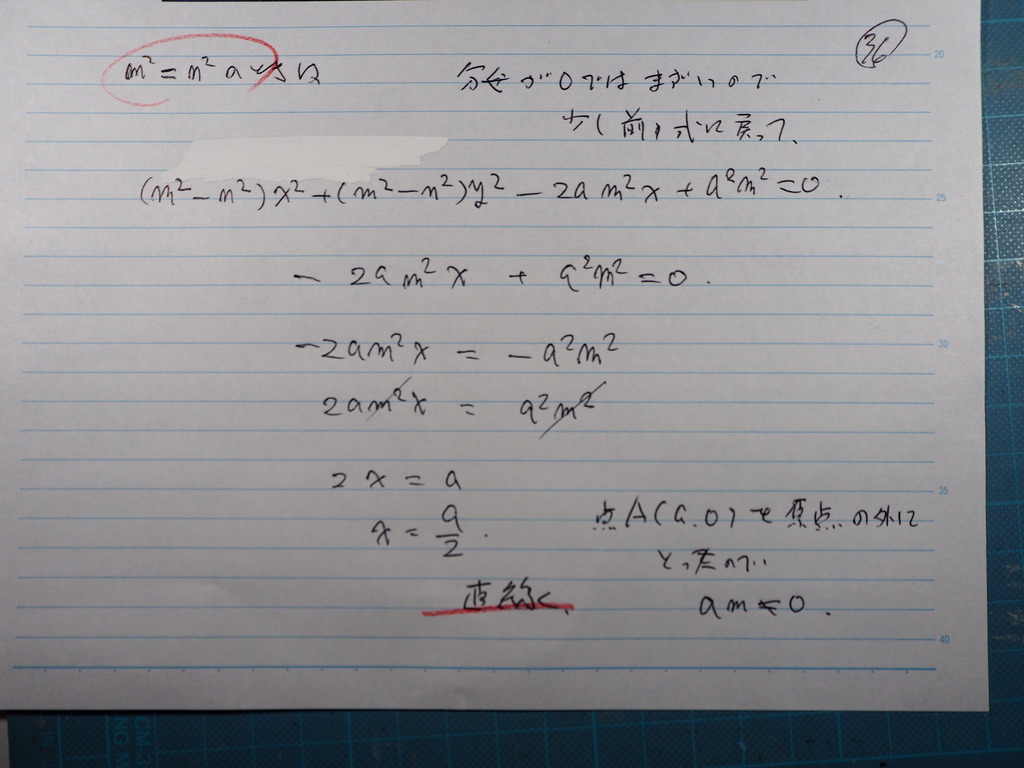 36
m² = n² のときは
分母が0ではまずいので
(前)式に戻って、
(m²-n²)x²+(m²-n²)y²-2am²x+a²m²=0.
-2am²x + a²m²=0.
-2am²x = -a²m²
2am²x = a²m²
2x = a
x = a/2.
点A(a,0)を原点の外に
とったので
am≠0.
直線
20
25
30
35
40